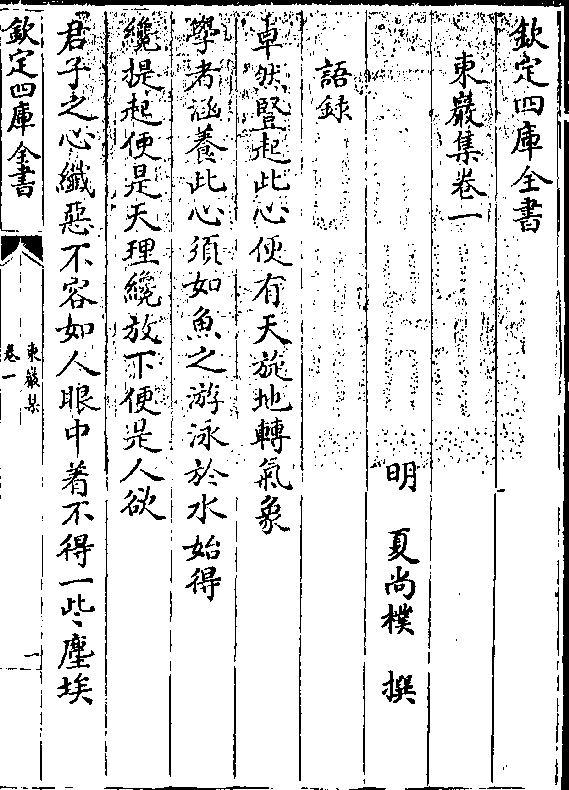 欽定四庫全書
東巖集卷一
明　夏尚樸　撰
語錄
卓然豎起此心便有天旋地轉氣象
學者涵養此心須如魚之游泳於水始得
纔提起便是天理纔放下便是人欲
君子之心纖惡不容如人眼中着不得一些塵埃
欽定四庫全書
東巖集
卷一
一